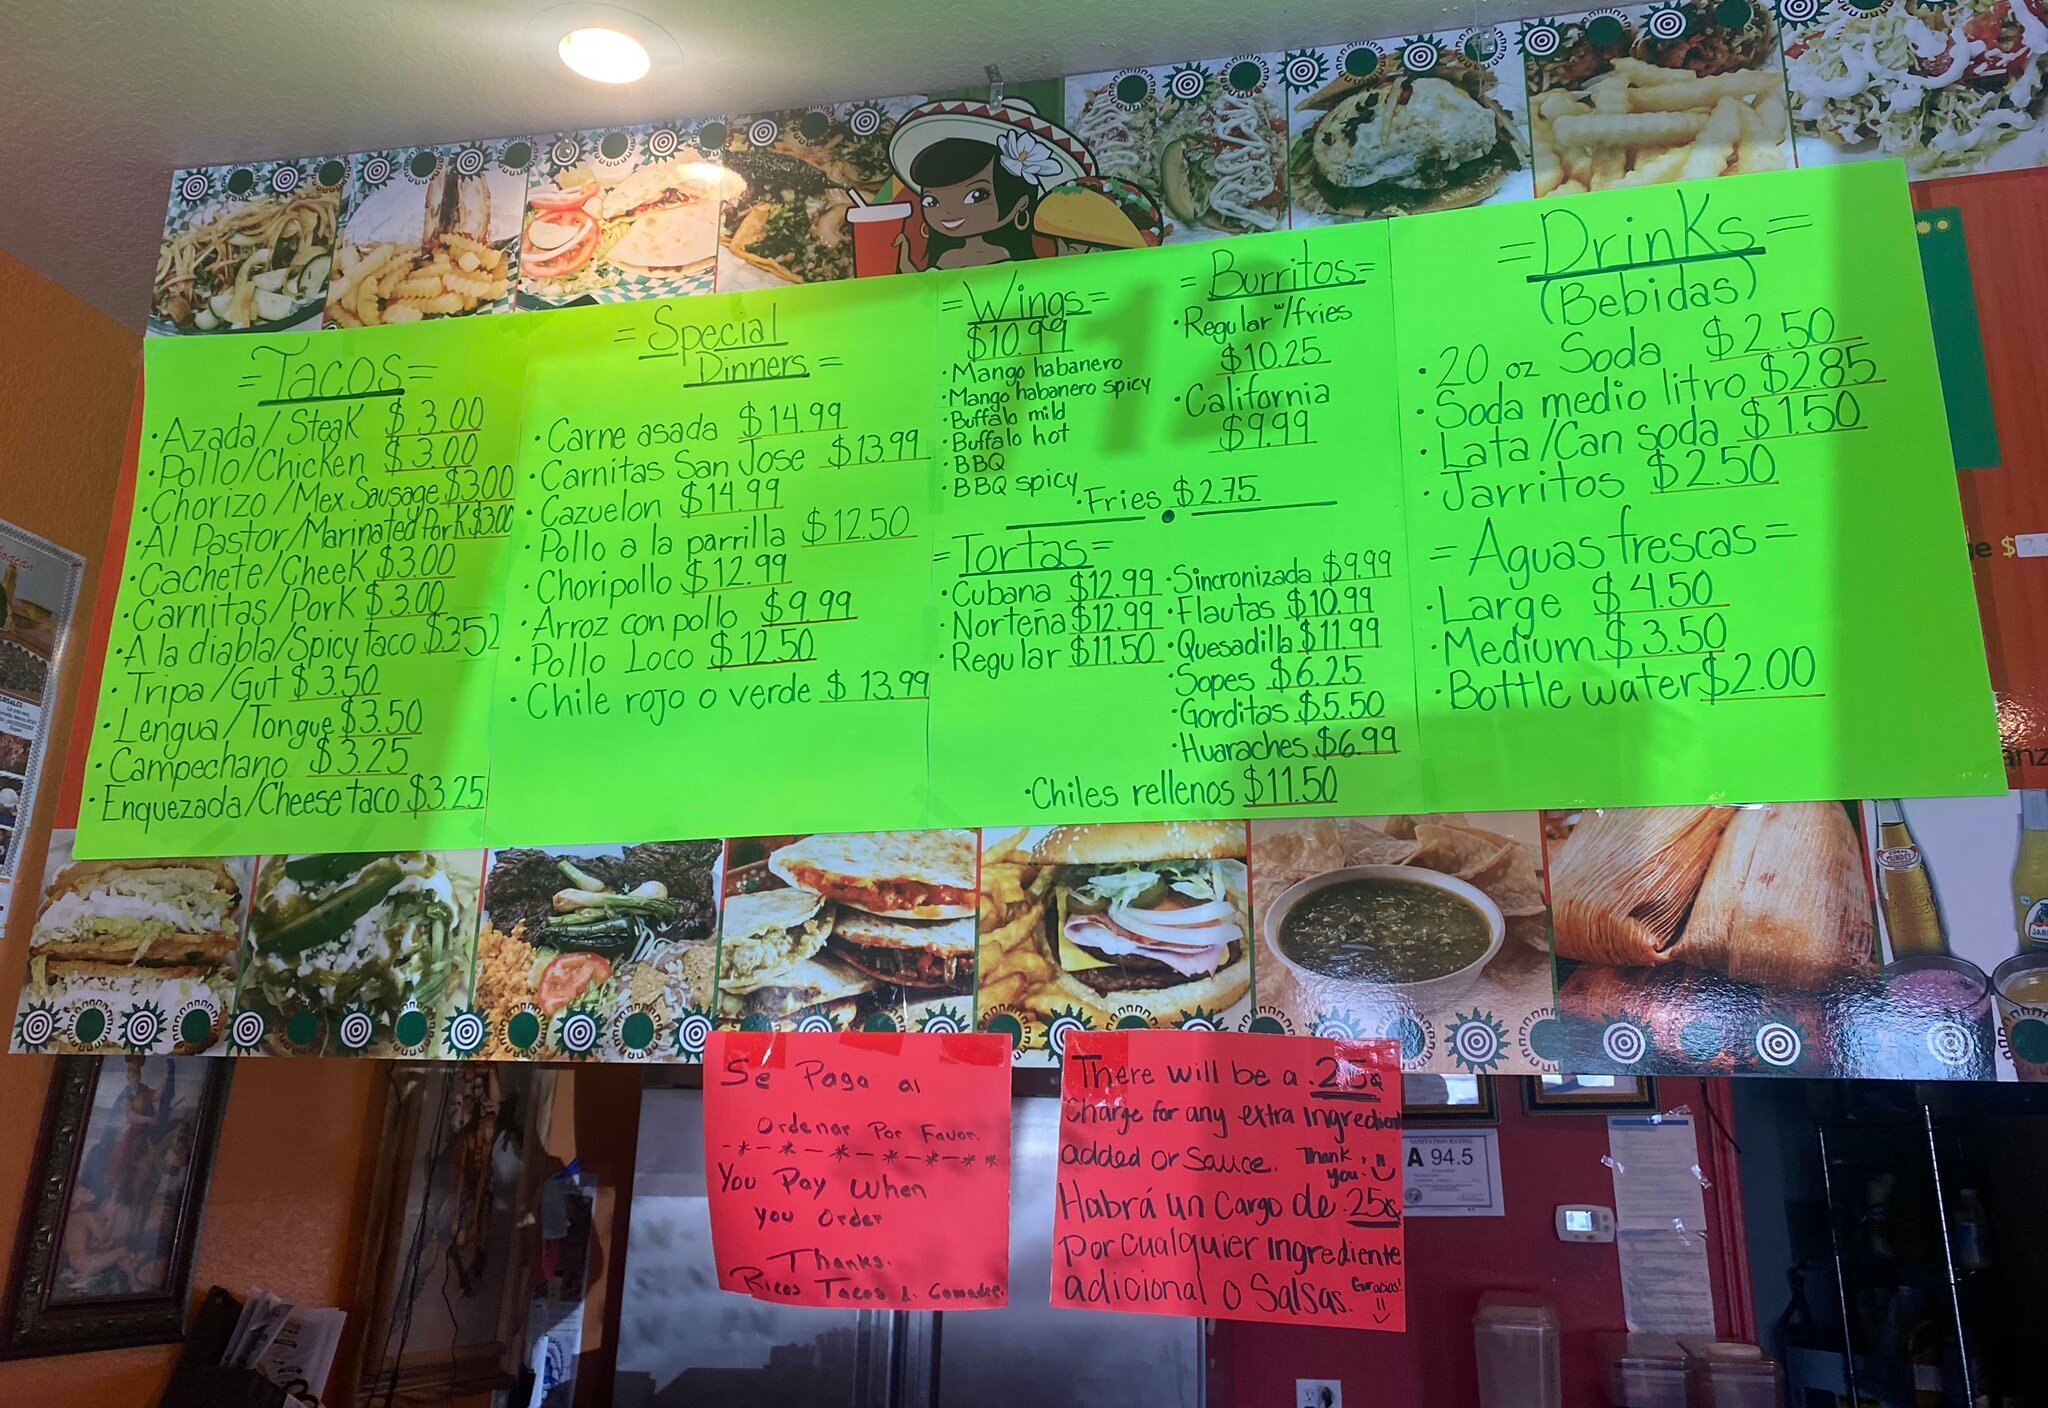 =Tacos=
·Azada/Steak $3.00
·Pollo/Chicken $3.00
·Chorizo/Mex. Sausage $3.00
·Al Pastor/Marinated Pork $3.00
·Cachete/Cheek $3.00
·Carnitas/Pork $3.00
·A la diabla/Spicy taco $3.52
·Tripa/Gut $3.50
·Lengua/Tongue $3.50
·Campechano $3.25
·Enquezada/Cheese taco $3.25
=Special
Dinners=
·Carne asada $14.99
·Carnitas San Jose $13.99
·Cazuelon $14.99
·Pollo a la parrilla $12.50
·Choripollo $12.99
·Arroz con pollo $9.99
·Pollo Loco $12.50
·Chile rojo o verde $13.99
=Wings=
$10.99
12
·Mango habanero
·Mango habanero spicy
·Buffalo mild
·Buffalo hot
·BBQ
·BBQ spicy
=Burritos=
·Regular w/fries
$10.25
·California
$9.99
·Fries $2.75
=Tortas=
·Cubana $12.99
·Norteña $12.99
·Regular $11.50
·Sincronizada $9.99
·Flautas $10.99
·Quesadilla $11.99
·Sopes $6.25
·Gorditas $5.50
·Huaraches $6.99
·Chiles rellenos $11.50
=Drinks=
(Bebidas)
·20 oz Soda $2.50
·Soda medio litro $2.85
·Lata/Can soda $1.50
·Jarritos $2.50
=Aguas frescas=
·Large $4.50
·Medium $3.50
·Bottle water $2.00
Se Paga al
Ordenar Por Favor.
-*-*-*-*-*-**
You Pay When
you Order
Thanks.
Ricos Tacos
There will be a .25¢
Charge for any extra ingredient
added or sauce. Thank
you.
Habrá un cargo de .25¢
por cualquier ingrediente
adicional o Salsas. Gracias!
SANITATION RATING
A 94.5